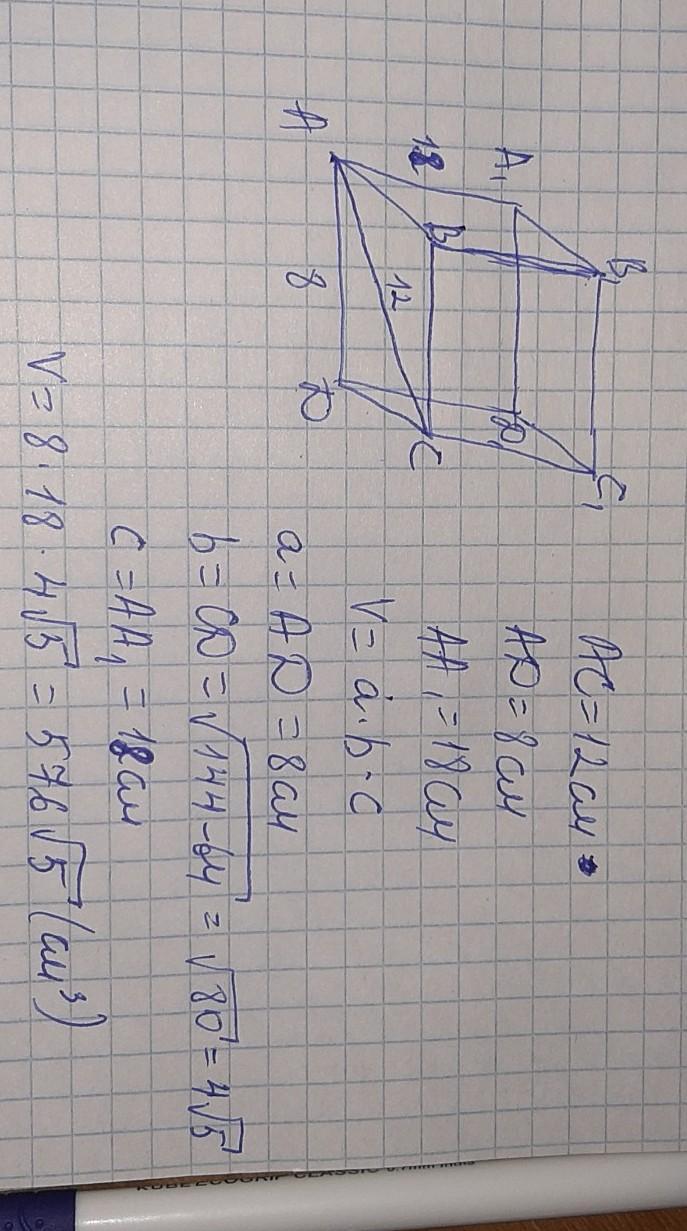 A₁ B₁
18
B
A 12 D₁ C₁
8 D C
AC = 12 см
AD = 8 см
AA₁ = 18 см
V = a · b · c
a = AD = 8 см
b = CD = √144-64 = √80 = 4√5
c = AA₁ = 18 см
V = 8 · 18 · 4√5 = 576√5 (см³)
CLASSIC